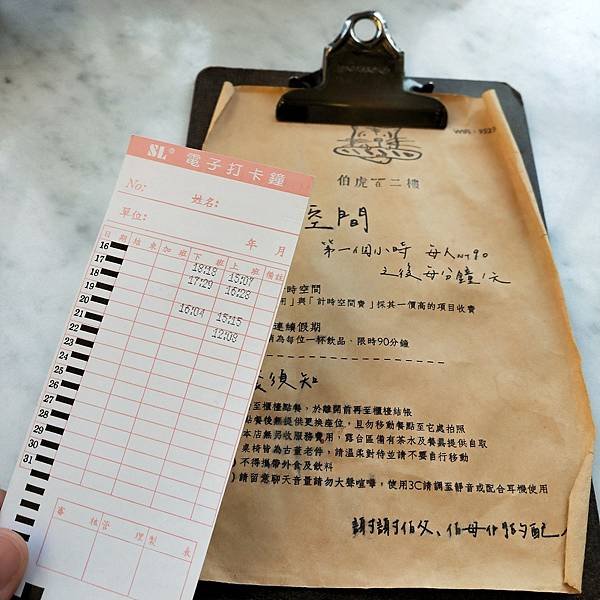 SL® 電子打卡鐘
No:
姓名:
單位:
年 月
日期 結束 加班 下班 上班 備註
16
17 18:18 15:07
18 17:29 16:28
19
20 16:04 15:15
21 12:09
22
23
24
25
26
27
28
29
30
31
審核 管理 製表
伯虎百二樓
空間
第一個小時 每人NT90
之後每分鐘1元
時空間
用」與「計時空間費」採其一價高的項目收費
連續假期
為每位一杯飲品、限時90分鐘
須知
至櫃檯點餐，於離開前再至櫃檯結帳
點餐後無提供更換座位，且勿移動餐點至它處拍照
本店無另收服務費用，露台區備有茶水及餐具提供自取
桌椅皆為古董老件，請溫柔對待並請不要自行移動
) 不得攜帶外食及飲料
) 請留意聊天音量請勿大聲喧嘩，使用3C請調至靜音或配合耳機使用
謝謝伯父、伯母們的配